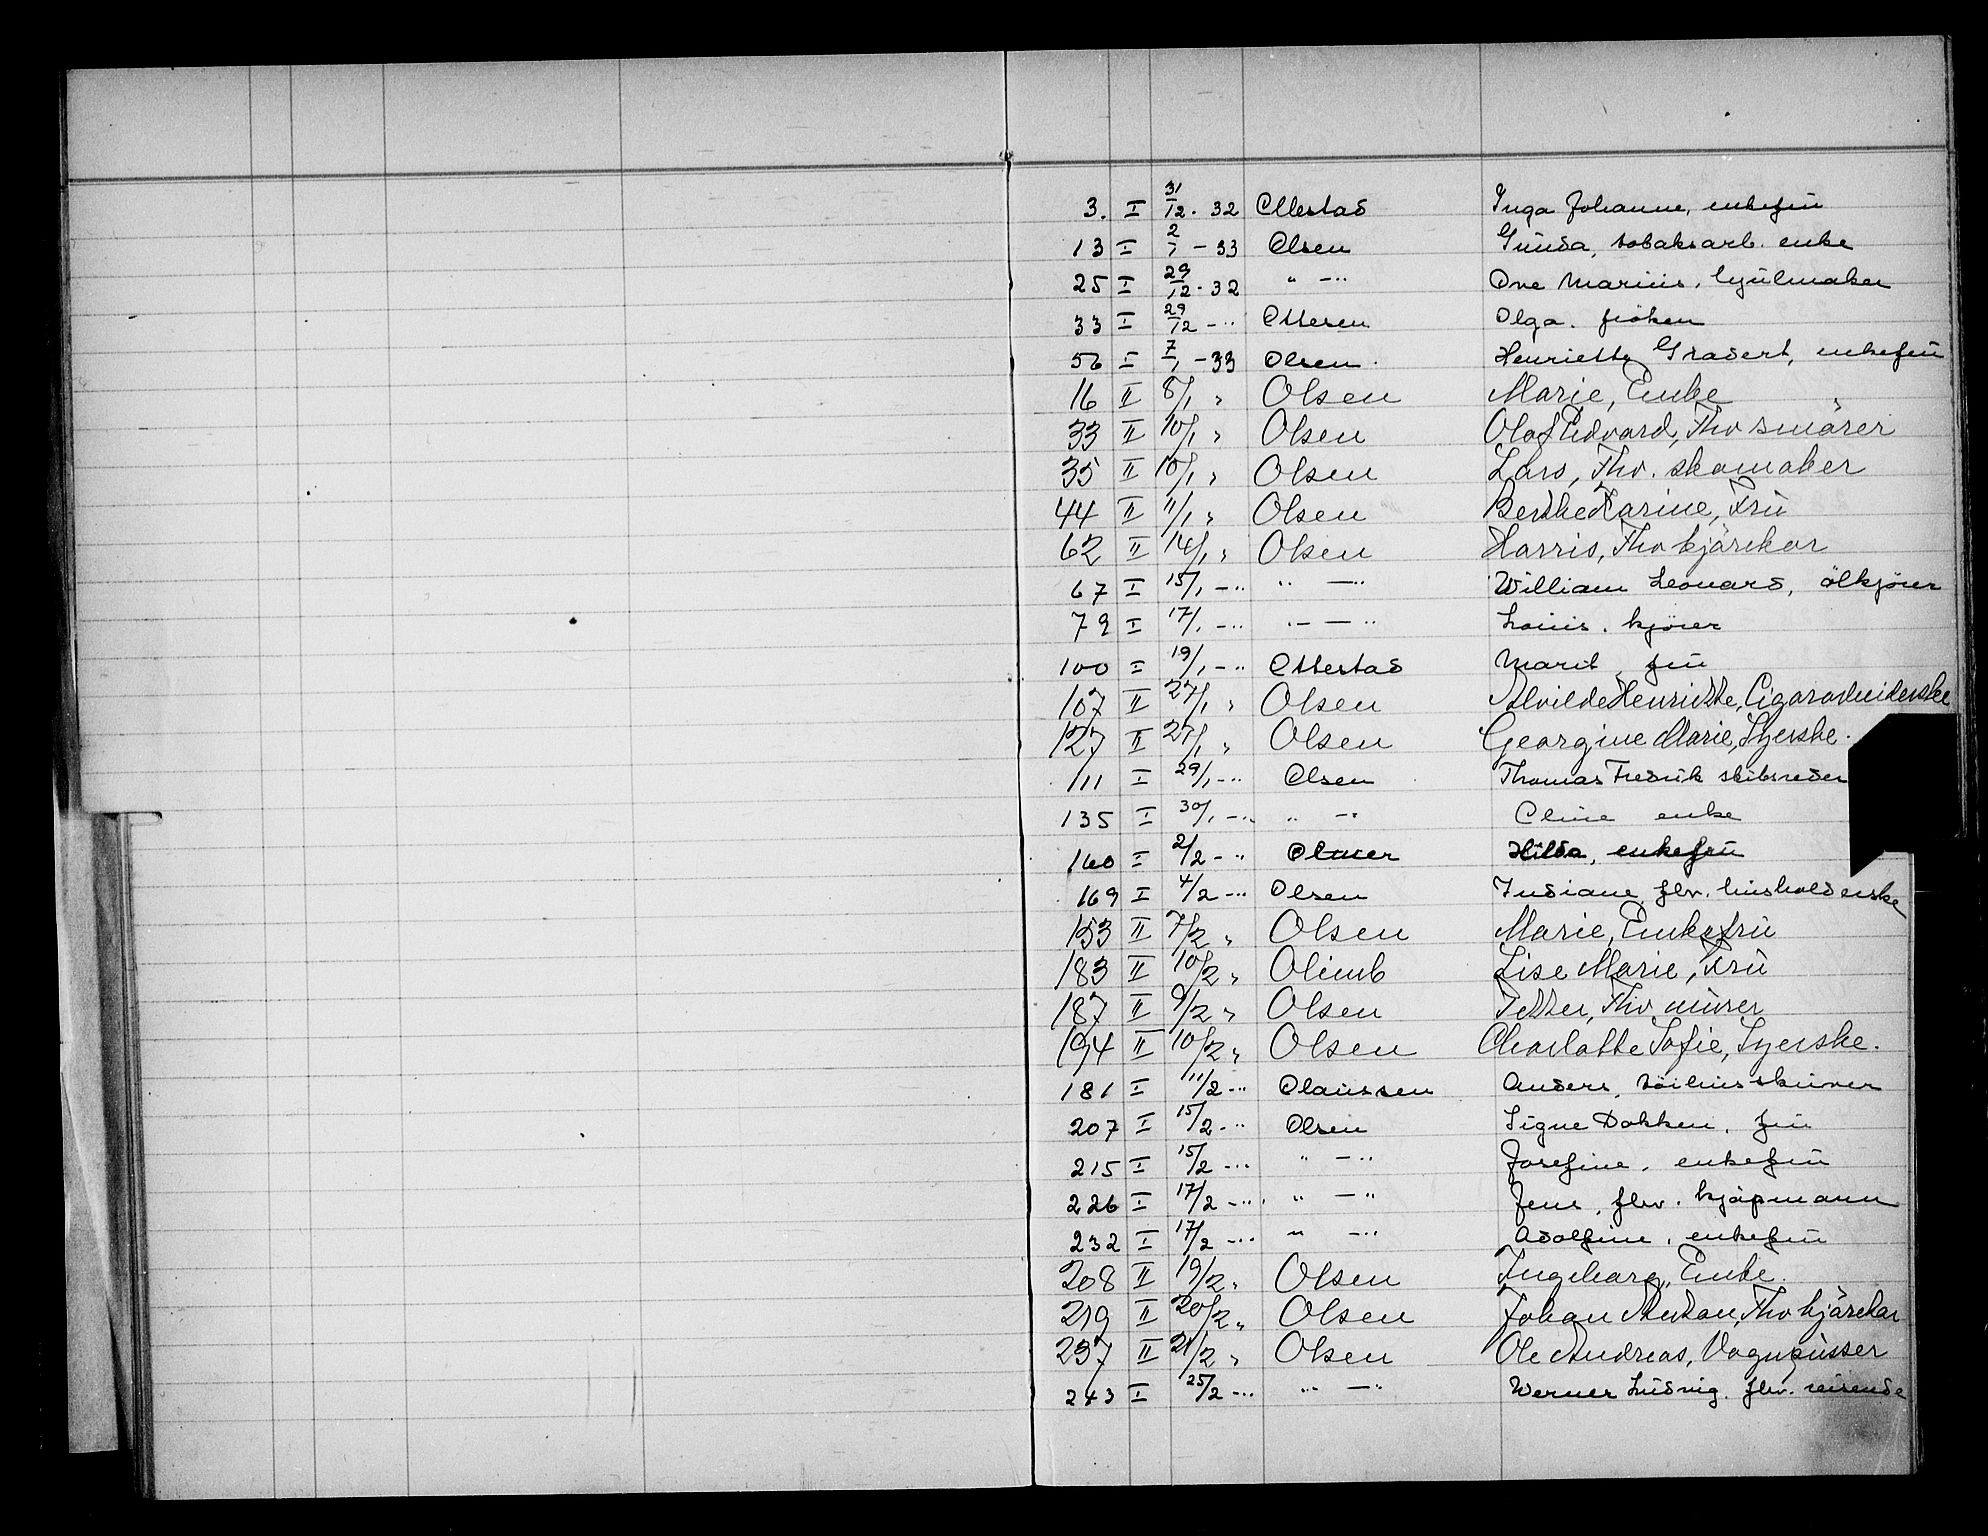 3. I 31/12 - 32 Ottestad Inga Johanne, enkefru
13 I 2/1 - 33 Olsen Gunda, tobaksarb. enke
25 I 29/12 - 32 " -"- Ove Marius, hjulmaker
33 I 29/12 -"- Ottesen Olga. frøken
56 I 7/1 - 33 Olsen Henriette Gradert, enkefru
16 II 8/1 " Olsen Marie, Enke
33 II 10/1 " Olsen Olaf Edvard, Fhv smörer
35 II 10/1 " Olsen Lars, Fhv. skomaker
44 II 11/1 " Olsen Berthe Karine, Frü
62 II 14/1 " Olsen Harris, Fhv kjörekar
67 I 15/1 -"- " -"- William Leonard, ölkjörer
79 I 17/1 -"- " -"- Louis. kjörer
100 I 19/1 -"- Ottestad Marit fru
107 II 27/1 " Olsen Alvilde Henriette, Cigararbeiderske
127 II 27/1 " Olsen Georgine Marie, Syerske.
111 I 29/1 -"- Olsen Thomas Fredrik skibsreder
135 I 30/1 -"- " -"- Oline enke
160 I 2/2 -"- Olmer Hilda, enkefru
169 I 4/2 -"- Olsen Indiane, fhv. husholderske
153 II 7/2 " Olsen Marie, Enkefrü
183 II 10/2 " Olimb Lise Marie, Frü
187 II 9/2 " Olsen Petter, Fhv mürer
194 II 10/2 " Olsen Charlotte Sofie, Syerske.
181 I 11/2 -"- Olaussen Anders, töihusskriver
207 I 15/2 -"- Olsen Signe Dokken, fru
215 I 15/2 -"- " -"- Josefine, enkefru
226 I 17/2 -"- " -"- Jens, fhv. kjöpmann
232 I 17/2 -"- " -"- Adolfine, enkefru
208 II 19/2 " Olsen Ingeborg, Enke.
219 II 20/2 " Olsen Johan Anton, Fhv kjörekar
237 II 21/2 " Olsen Ole Andreas, Vognpüsser
243 I 25/2 -"- " -"- Werner Ludvig. fhv. reisende